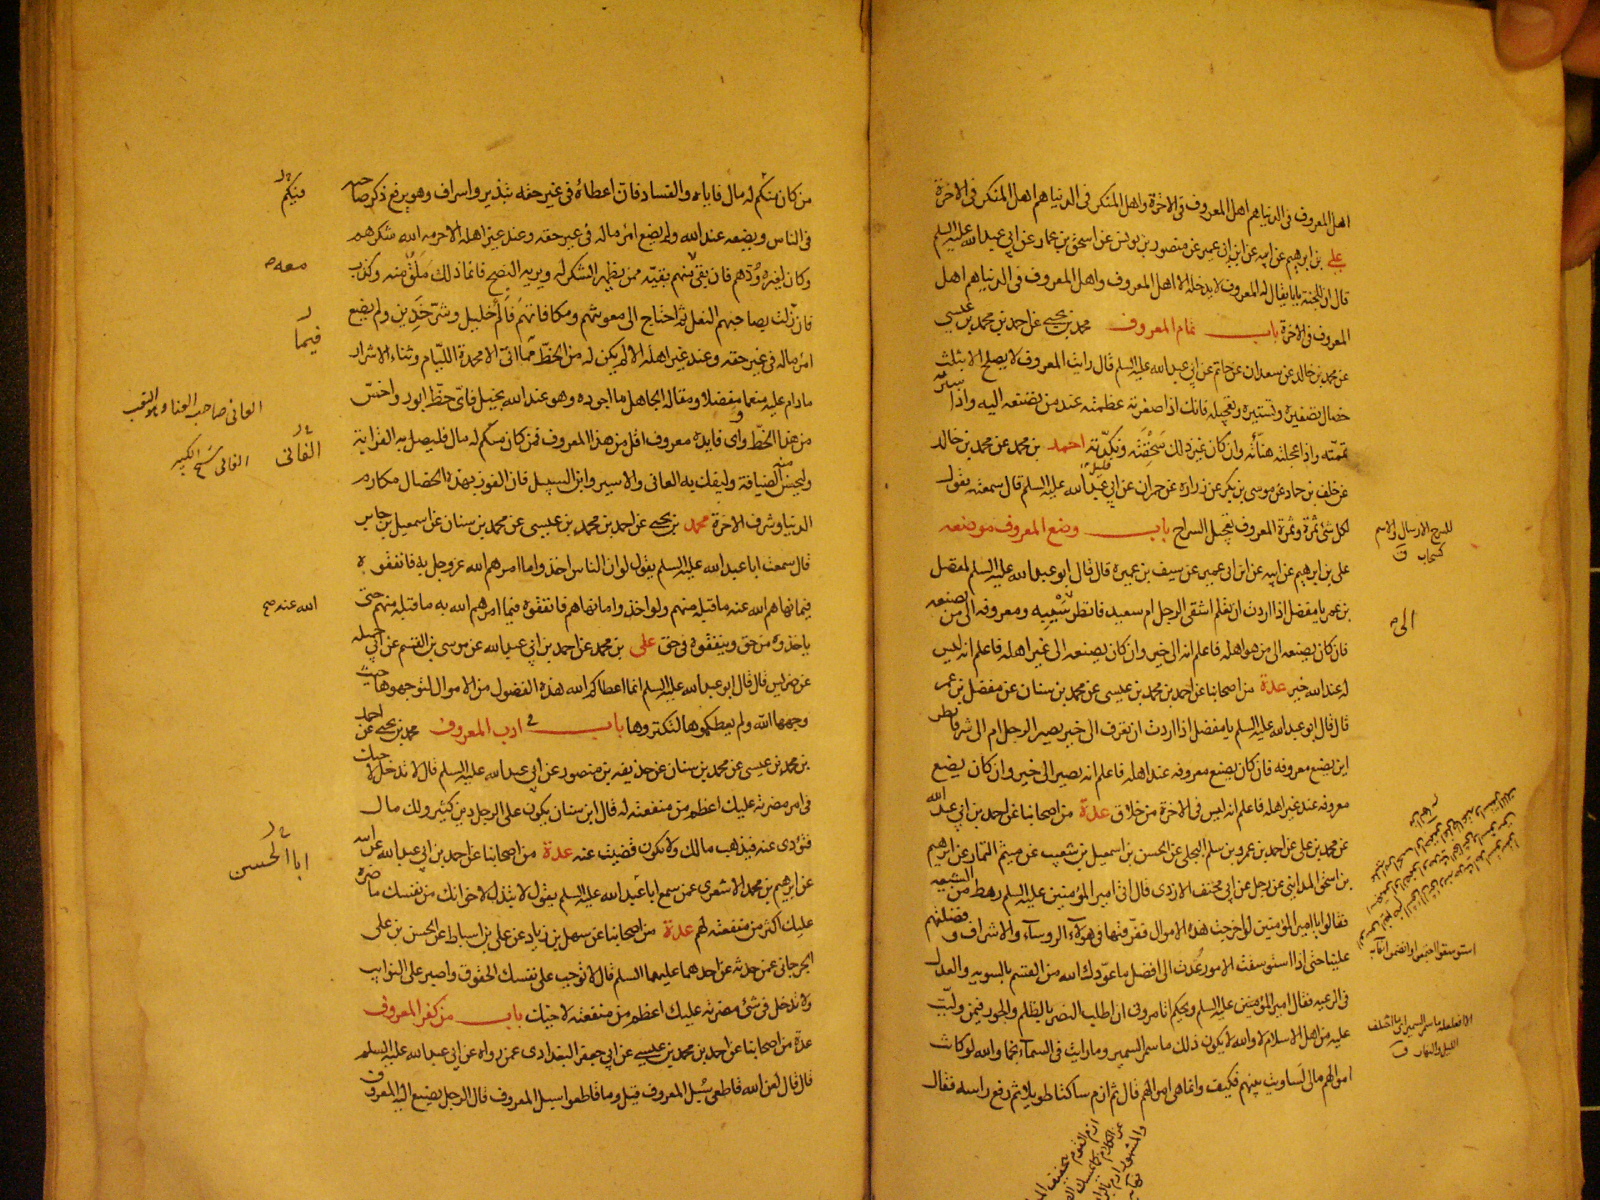 اهل المعروف فى الدنيا هم اهل المعروف فى الاخرة واهل المنكر فى الدنيا هم اهل المنكر فى الاخرة
على بن ابرهيم عن ابيه عن ابن ابى عمير عن منصور بن يونس عن اسحق بن عمار عن ابى عبد الله عليه السلم
قال ان للجنة بابا يقال له المعروف لا يدخله الا اهل المعروف واهل المعروف فى الدنيا هم اهل
المعروف فى الاخرة باب تمام المعروف محمد بن يحيى عن احمد بن محمد بن عيسى
عن محمد بن خالد عن سعدان عن حاتم عن ابى عبد الله عليه السلم قال رايت المعروف لا يصلح الا بثلث
خصال تصغيره وتستيره وتعجيله فانك اذا صغرته عظمته عند من تصنعه اليه واذا سترته
تممته واذا عجلته هنأته وان كان غير ذلك سخفته ونكدته احمد بن محمد عن محمد بن خالد
عن خلف بن حماد عن موسى بن بكر عن زرارة عن حمران عن ابى عبد الله عليه السلم قال سمعته يقول
لكل شئ ثمرة وثمرة المعروف تعجيل السراح باب وضع المعروف موضعه
على بن ابرهيم عن ابيه عن ابن ابى عمير عن سيف بن عميرة قال قال ابو عبد الله عليه السلم لمفضل
بن عمر يا مفضل اذا اردت ان تعلم اشقى الرجل ام سعيد فانظر سيبه ومعروفه الى من يصنعه
فان كان يصنعه الى من هو اهله فاعلم انه الى خير وان كان يصنعه الى غير اهله فاعلم انه ليس
له عند الله خير عدة من اصحابنا عن احمد بن محمد بن عيسى عن محمد بن سنان عن مفضل بن عمر
قال قال ابو عبد الله عليه السلم يا مفضل اذا اردت ان تعرف الى خير يصير الرجل ام الى شر فانظر
اين يضع معروفه فان كان يضع معروفه عند اهله فاعلم انه يصير الى خير وان كان يضع
معروفه عند غير اهله فاعلم انه ليس فى الاخرة من خلاق عدة من اصحابنا عن احمد بن ابى عبد الله
عن محمد بن على عن احمد بن عمرو بن سلم البجلى عن الحسن بن اسمعيل بن شعيب عن ميثم التمار عن ابرهيم
بن اسحق المدائنى عن رجل عن ابى مخنف الازدى قال اتى امير المؤمنين عليه السلم رهط من الشيعه
فقالوا يا امير المؤمنين لو اخرجت هذه الاموال ففرقتها فى هؤلاء الروساء والاشراف وفضلتهم
علينا حتى اذا استوسقت الامور عدت الى افضل ما عودك الله من القسم بالسويه والعدل
فى الرعيه فقال امير المؤمنين عليه السلم ويحكم اتامرونى ان اطلب النصر بالظلم والجور فيمن وليت
عليه من اهل الاسلام لا والله لا يكون ذلك ما سمر السمير وما رايت فى السماء نجما والله لو كانت
اموالهم مالى لساويت بينهم فكيف وانما هى اموالهم قال ثم ازم ساكتا طويلا ثم رفع راسه فقال
السرح الارسال والاسم
كسحاب ق
الى
استوسقوا اجتمعوا وانضموا
الليل والنهار ق
من كان منكم له مال فاياه والفساد فان اعطاءه فى غير حقه تبذير واسراف وهو يرفع ذكر صاحبه
فى الناس ويضعه عند الله ولم يضع امرء ماله فى غير حقه وعند غير اهله الا حرمه الله شكرهم
وكان لغيره ودهم فان بقى منهم بقية ممن يظهر الشكر له ويريه النصح فانما ذلك ملق منه وكذب
فان زلت بصاحبهم النعل ثم احتاج الى معونتهم ومكافاتهم فالأم خليل وشر خدين ولم يضع
امرء ماله فى غير حقه وعند غير اهله الا لم يكن له من الحظ فما اتى الا محمدة اللئام وثناء الاشرار
ما دام عليه منعما مفضلا ومقالة الجاهل ما اجوده وهو عند الله بخيل فاى حظ ابور واخس
من هذا الحظ واى فايدة معروف اقل من هذا المعروف فمن كان منكم له مال فليصل به القرابة
وليحسن منه الضيافة وليفك به العانى والاسير وابن السبيل فان الفوز بهذه الخصال مكارم
الدنيا وشرف الاخرة محمد بن يحيى عن احمد بن محمد بن عيسى عن محمد بن سنان عن اسمعيل بن جابر
قال سمعت ابا عبد الله عليه السلم يقول لو ان الناس اخذوا ما امرهم الله عز وجل به فانفقوه
فيما نهاهم الله عنه ما قبله منهم ولو اخذوا ما نهاهم فانفقوه فيما امرهم الله به ما قبله منهم حتى
ياخذوه من حق وينفقوه فى حق على بن محمد عن احمد بن ابى عبد الله عن موسى بن القسم عن ابى جميله
عن ضريس قال قال ابو عبد الله عليه السلم انما اعطاكم الله هذه الفضول من الاموال لتوجهوها حيث
وجهها الله ولم يعطكموها لتكنزوها باب فى ادب المعروف محمد بن يحيى عن احمد
بن محمد بن عيسى عن محمد بن سنان عن حذيفه بن منصور عن ابى عبد الله عليه السلم قال لا تدخل لاخيك
فى امر مضرته عليك اعظم من منفعته له قال ابن سنان يكون على الرجل دين كثير ولك مال
فتؤدى عنه فيذهب مالك ولا تكون قضيت عنه عدة من اصحابنا عن احمد بن ابى عبد الله عن ابيه
عن ابرهيم بن محمد الاشعرى عمن سمع ابا عبد الله عليه السلم يقول لا تبذل لاخوانك من نفسك ما ضره
عليك اكثر من منفعته لهم عدة من اصحابنا عن سهل بن زياد عن على بن اسباط عن الحسن بن على
الجرجانى عمن حدثه عن احدهما عليهما السلم قال لا توجب على نفسك الحقوق واصبر على النوايب
ولا تدخل فى شئ مضرته عليك اعظم من منفعته لاخيك باب من كفر المعروف
عدة من اصحابنا عن احمد بن محمد بن عيسى عن ابى جعفر البغدادى عمن رواه عن ابى عبد الله عليه السلم
قال قال لعن الله قاطعى سبل المعروف قيل وما قاطعوا سبيل المعروف قال الرجل يصنع اليه المعروف
فيكم
معه
فيما
العانى صاحب العناء وهو التعب
الفانى
الفانى شيخ الكبير
الله عنه صح
ابا الحسن